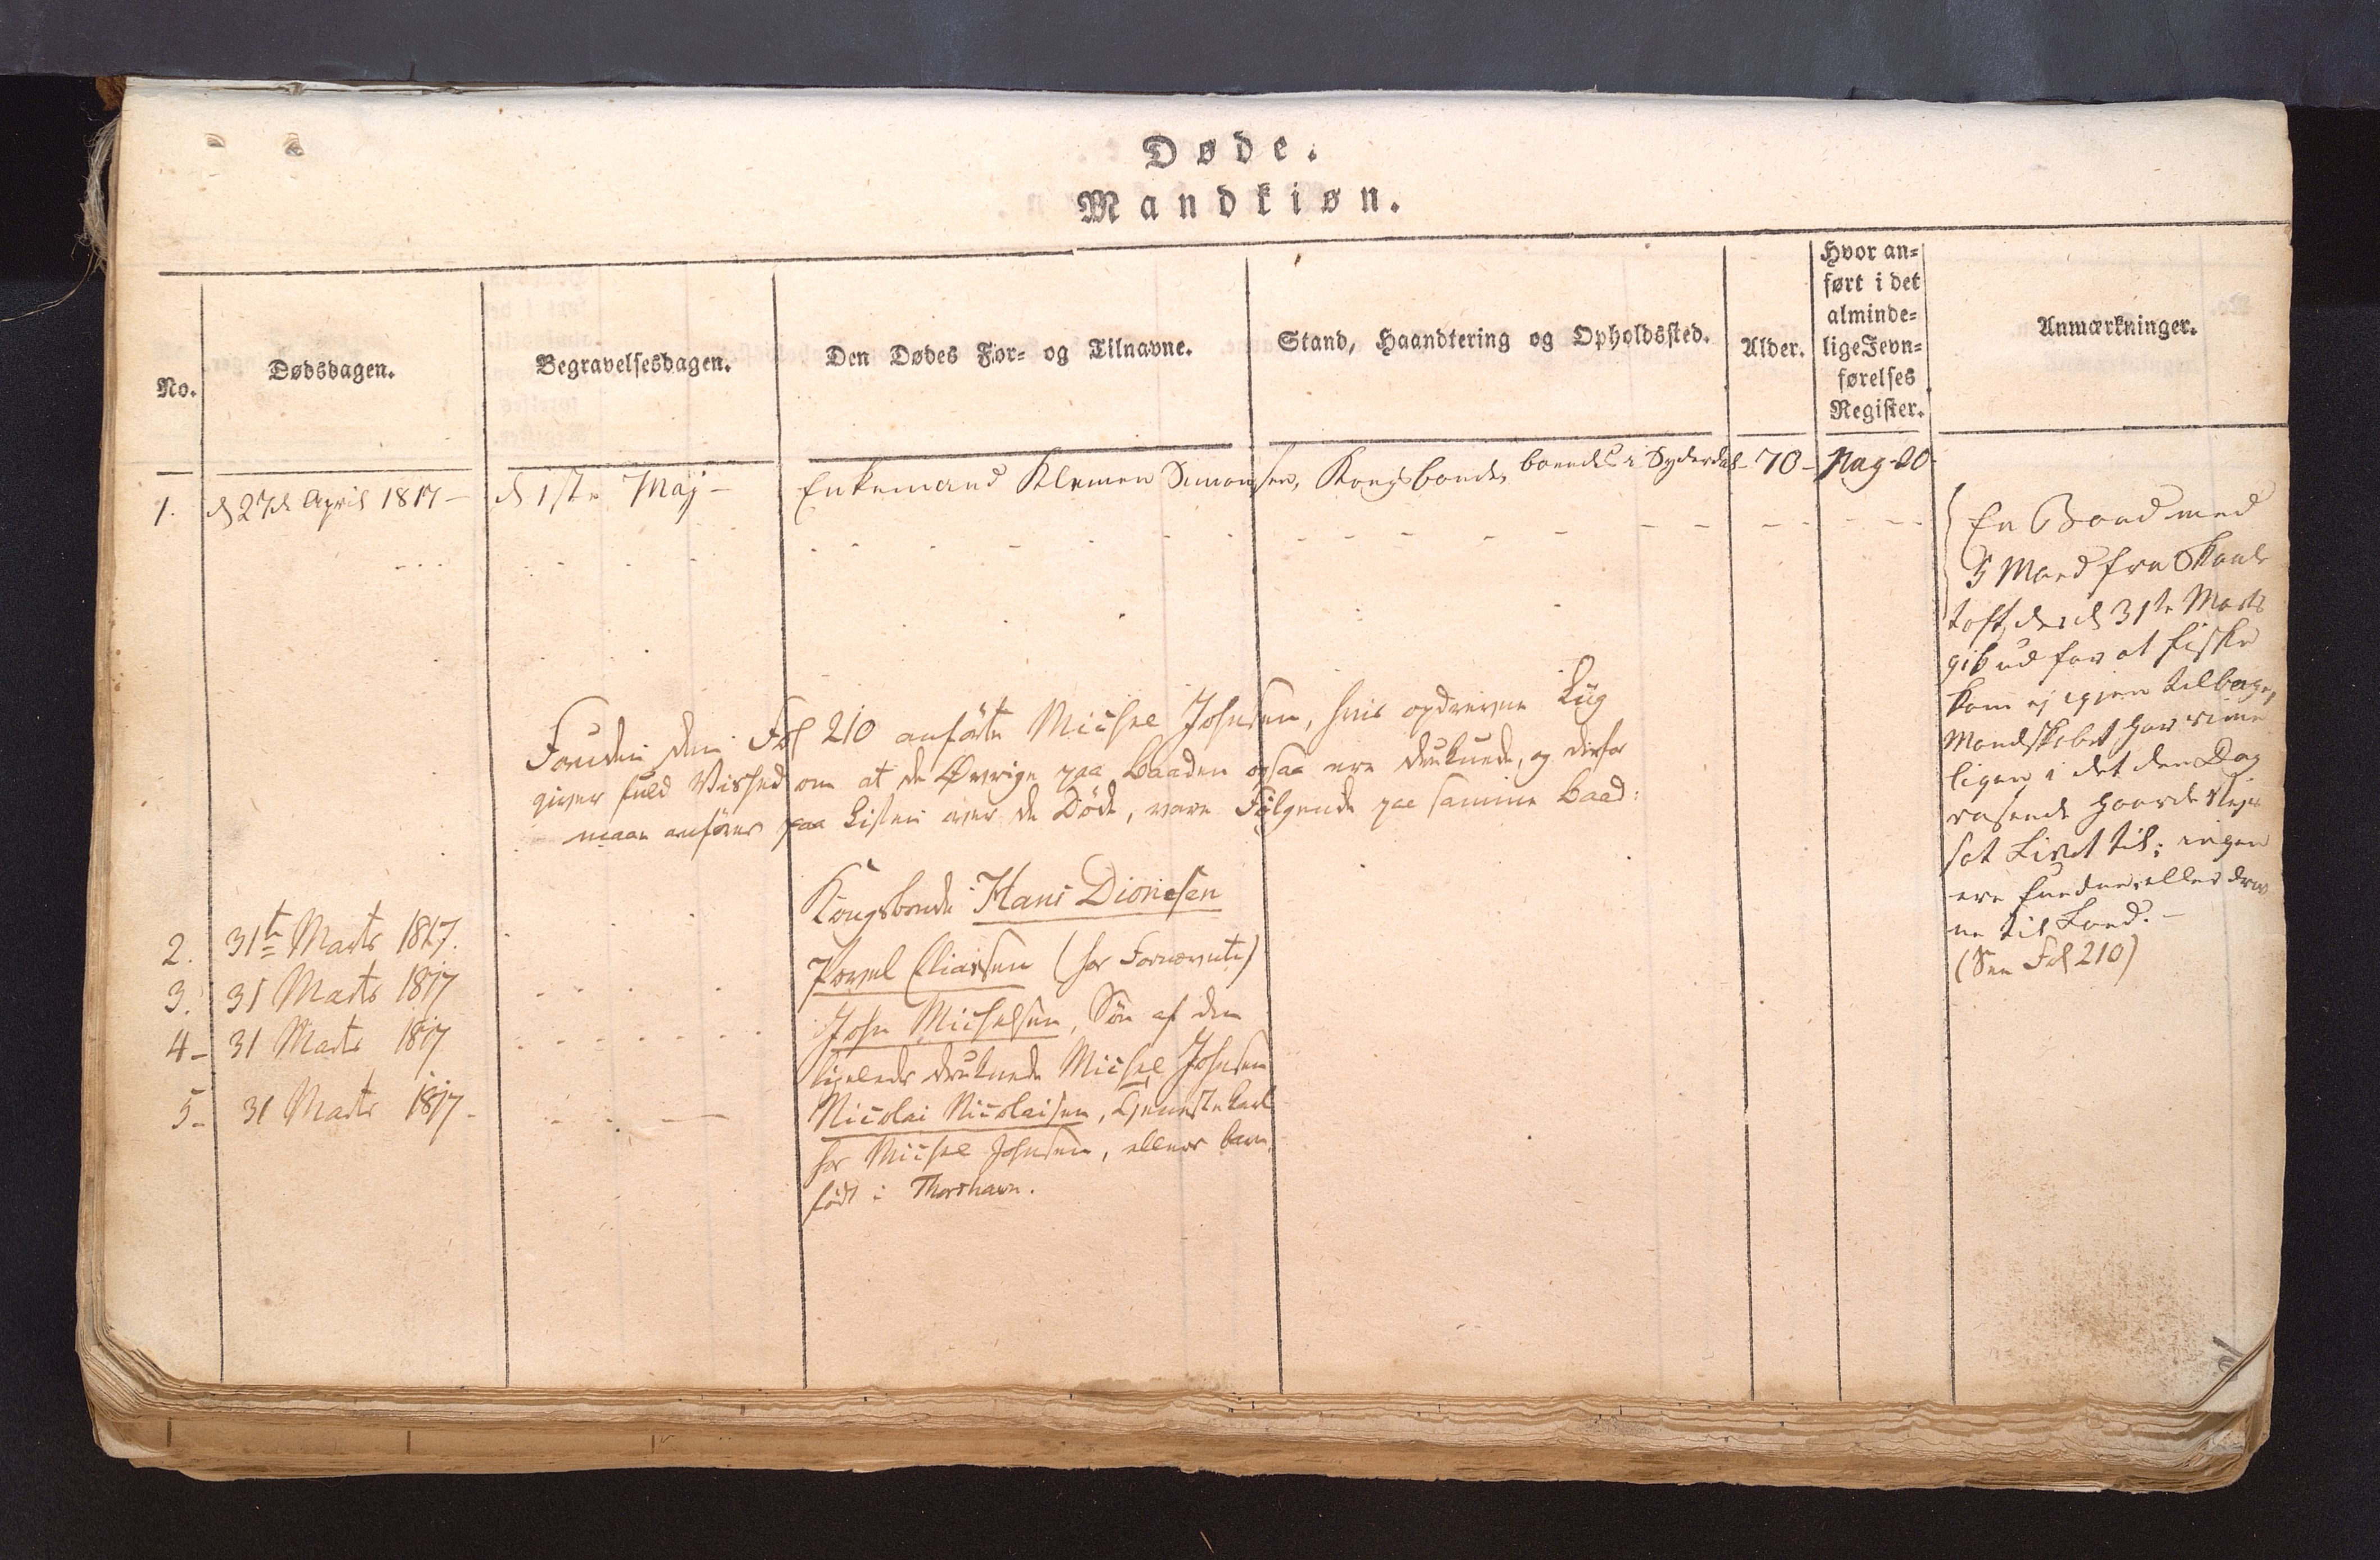 Døde.
Mandkiøn.
No.
Dødsdagen.
Begravelsesdagen.
Den Dødes For- og Tilnavne.
Stand, Haandtering og Opholdssted.
Alder.
Hvor an-
ført i det
alminde-
lige Jevn-
førelses
Register.
Anmærkninger.
1. d 27de April 1817 - d 1ste Maj - Enkemand Klemen Simonsen, Kongsbonde boende i Syderdal - 70 - Pag 20
En Baad med
5 Mand fra Skaale
toft, der d 31te Marts
gik ud for at fiske
kom ej igjen tilbage,
Mandskabet har rime
ligen i det den Dag
rasende haarde Vejr
sat Livet til; ingen
ere fundne eller drev
ne til Land. -
(See Fol 210)
Foruden den Fol 210 anførte Michel Johnsen, hvis opdrevne Liig
giver fuld Vished om at de Øvrige paa Baaden ogsaa ere druknede, og derfor
maae anføres paa Listen over de Döde, vare Fölgende paa samme Baad:
2. 31te Marts 1817. Kongsbonde Hans Dionesen
3. 31 Marts 1817 Povel Eliassen (hos Fornævnte)
4 - 31 Marts 1817 John Michelsen, Sön af den
ligeledes druknede Michel Johnsen
5 - 31 Marts 1817 - Nicolai Nicolaisen, Tjenestekarl
hos Michel Johnsen, ellers barn
född i Thorshavn.